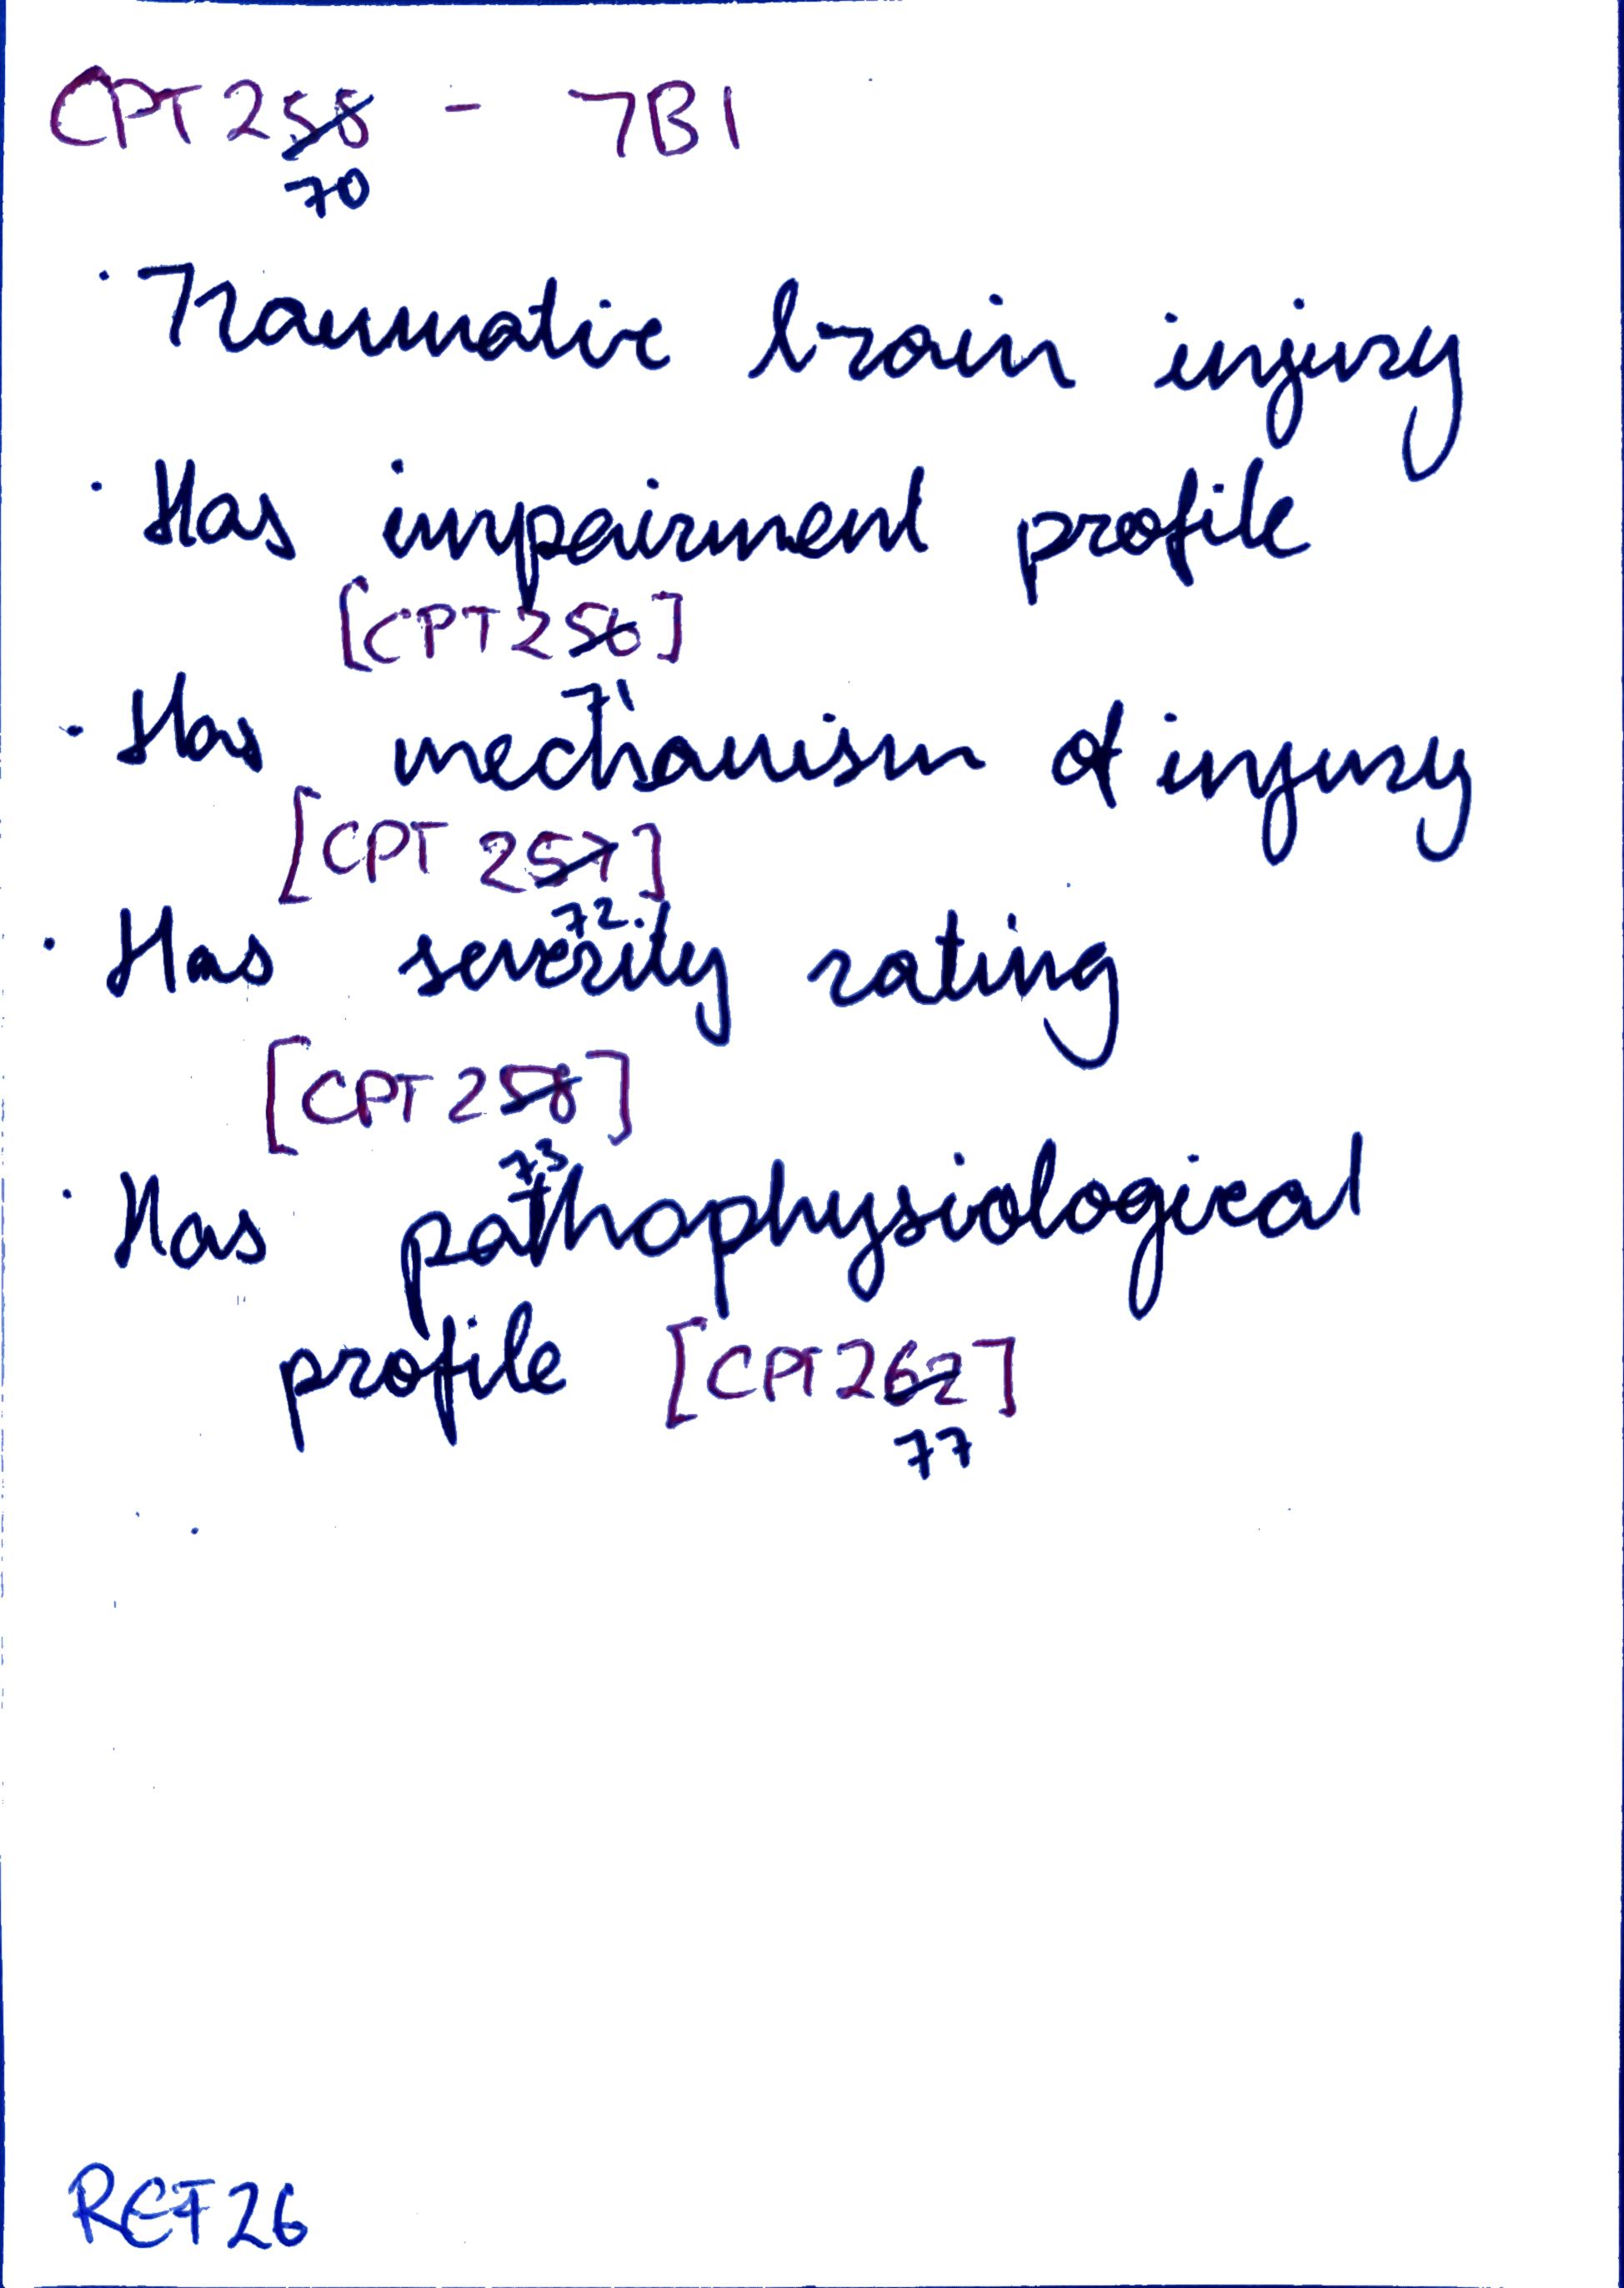 CPT 258 - TBI
70
· Traumatic brain injury
· Has impairment profile
[CPT 256]
71
· Has mechanism of injury
[CPT 257]
72.
· Has severity rating
[CPT 258]
73
· Has pathophysiological
profile [CPT 262]
77
REF 26